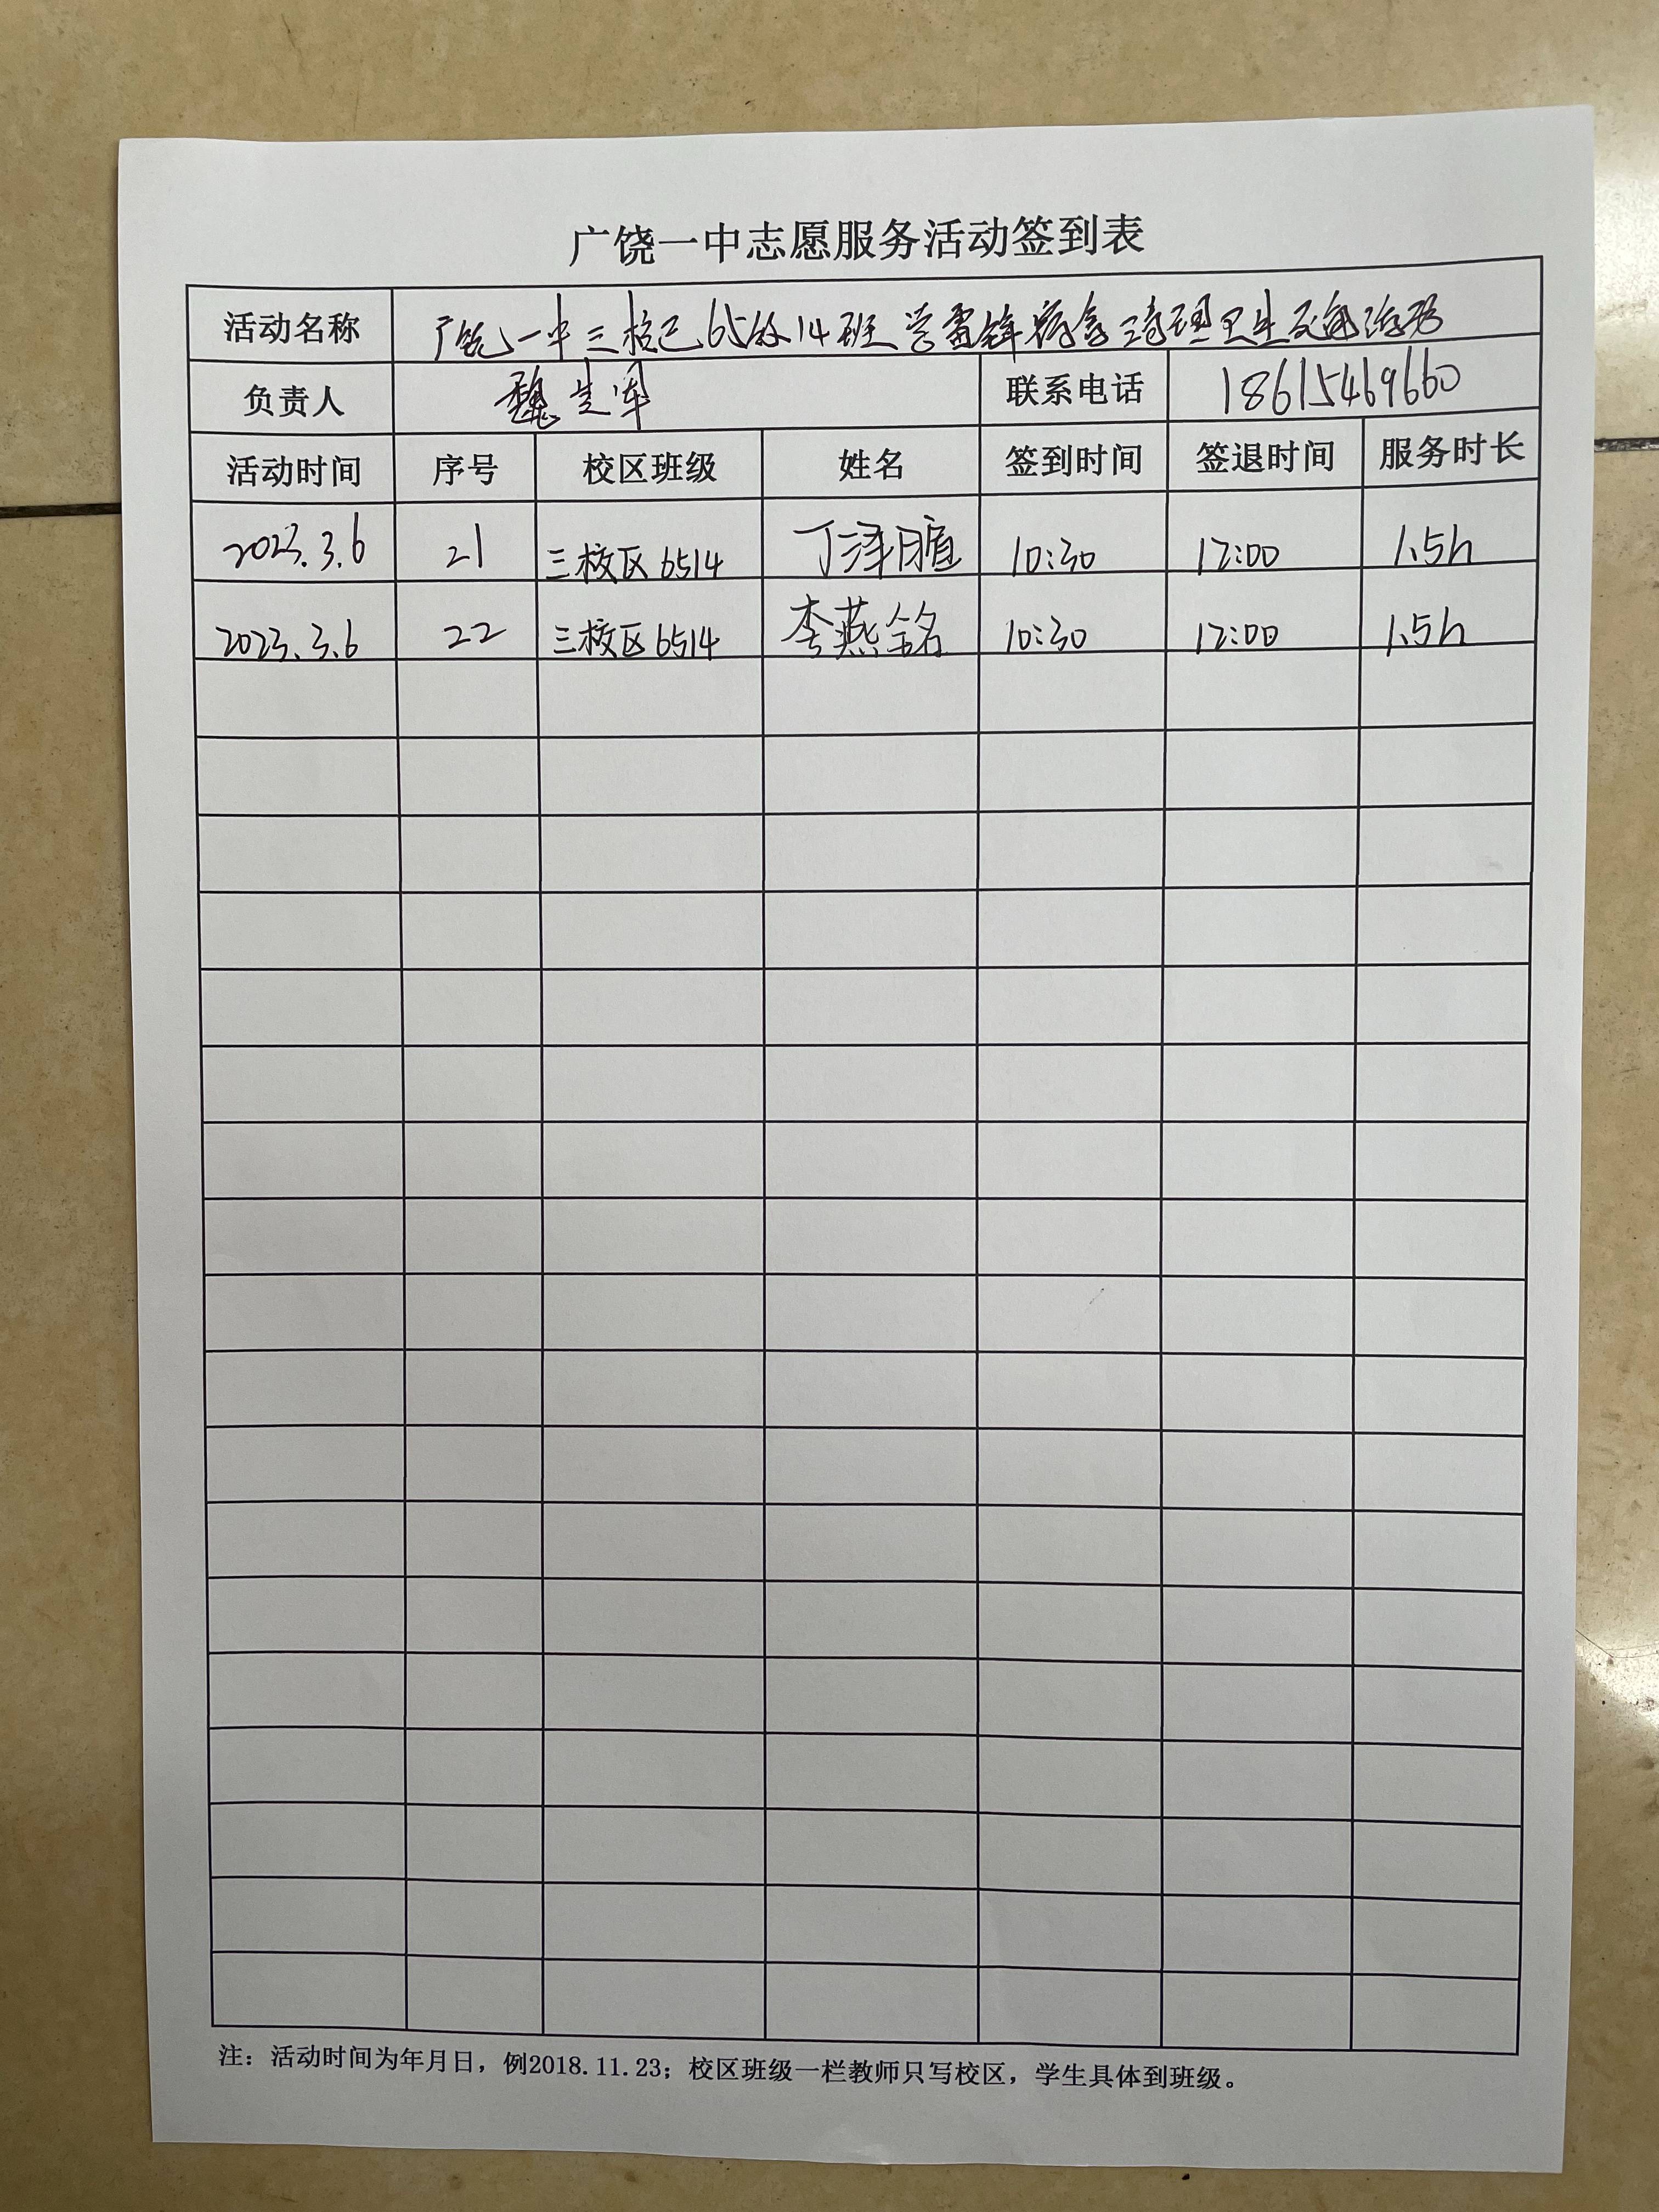 广饶一中志愿服务活动签到表
活动名称 广饶一中三校区65级14班学雷锋 清理卫生 活动
负责人 魏 军 联系电话 18615469660
活动时间 序号 校区班级 姓名 签到时间 签退时间 服务时长
2023.3.6 21 三校区6514 丁泽暄 10:30 12:00 1.5h
2023.3.6 22 三校区6514 李燕铭 10:30 12:00 1.5h
注：活动时间为年月日，例2018.11.23；校区班级一栏教师只写校区，学生具体到班级。